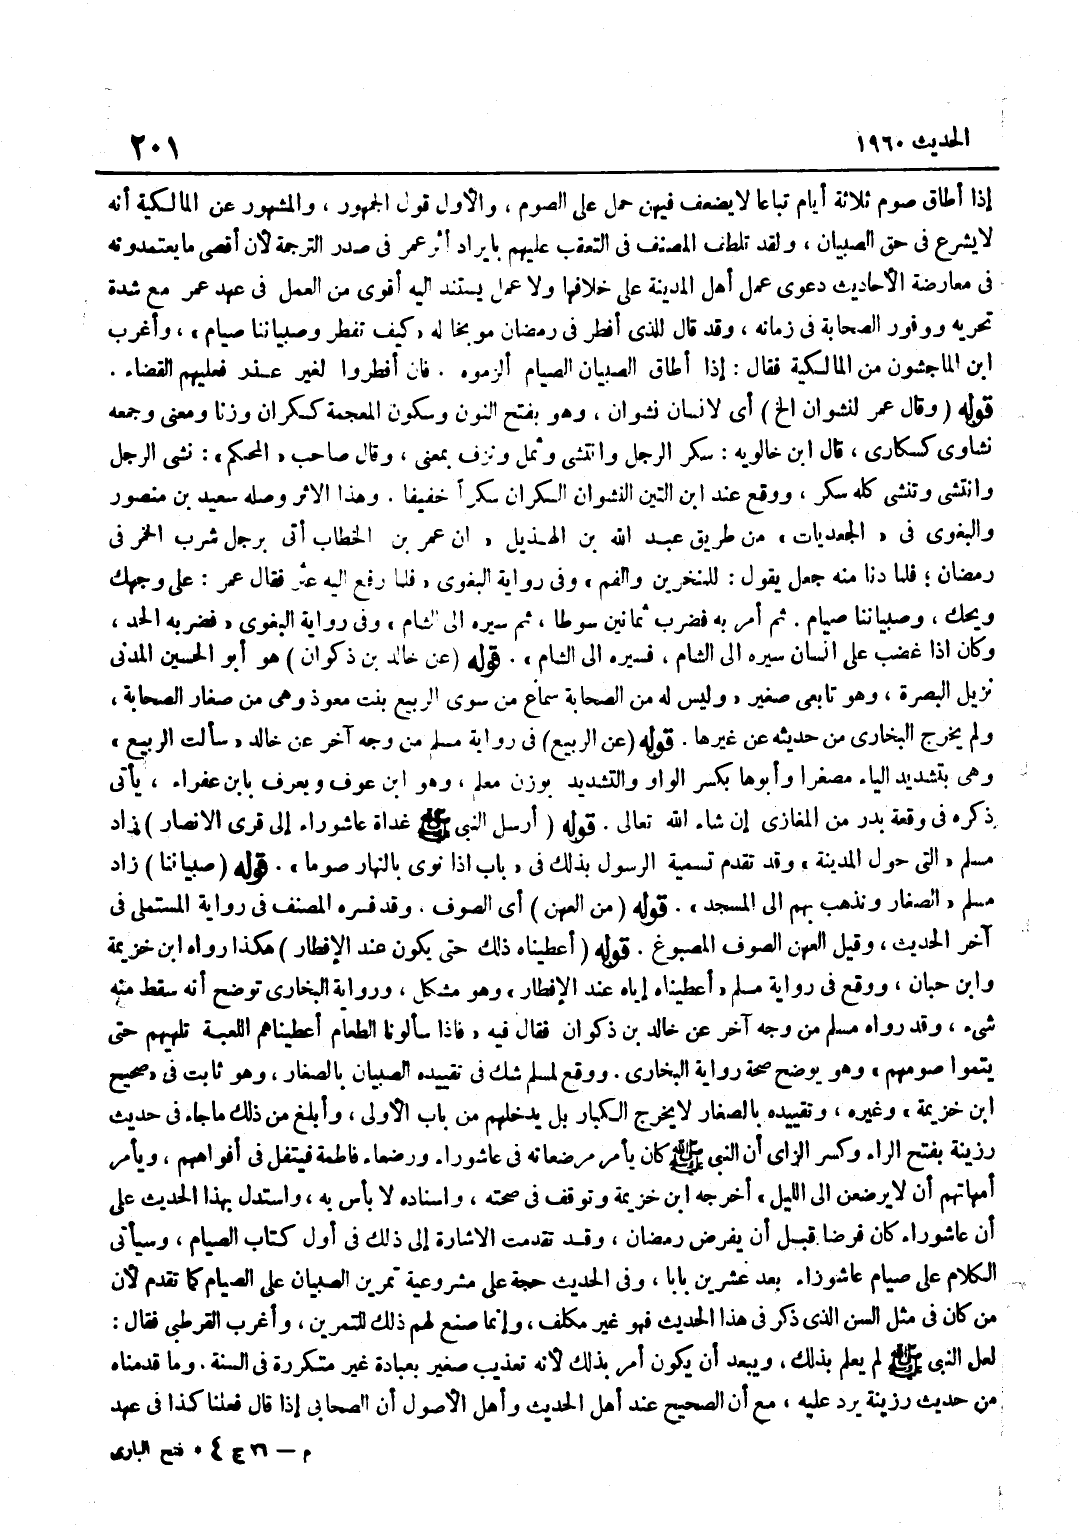 الحديث ١٩٦٠
٢٠١
إذا أطاق صوم ثلاثة أيام تباعا لا يضعف فيهن حمل على الصوم ، والأول قول الجمهور ، والمشهور عن المالكية أنه
لا يشرع فى حق الصبيان ، ولقد تلطف المصنف فى التعقب عليهم بايراد أثر عمر فى صدر الترجمة لأن أقصى ما يعتمدونه
فى معارضة الأحاديث دعوى عمل أهل المدينة على خلافها ولا عمل يستند اليه أقوى من العمل فى عهد عمر مع شدة
تحريه ووفور الصحابة فى زمانه ، وقد قال للذى أفطر فى رمضان موبخا له « كيف تفطر وصبياننا صيام » ، وأغرب
ابن الماجشون من المالكية فقال : إذا أطاق الصبيان الصيام ألزموه . فان أفطروا لغير عذر فعليهم القضاء .
قوله ( وقال عمر لنشوان الخ ) أى لانسان نشوان ، وهو بفتح النون وسكون المعجمة كسكران وزنا ومعنى وجمعه
نشاوى كسكارى ، قال ابن خالويه : سكر الرجل وانتشى وثمل ونزف بمعنى ، وقال صاحب « المحكم » : نشى الرجل
وانتشى وتنشى كله سكر ، ووقع عند ابن التين النشوان السكران سكراً خفيفا . وهذا الاثر وصله سعيد بن منصور
والبغوى فى « الجعديات » من طريق عبد الله بن الهذيل « ان عمر بن الخطاب أتى برجل شرب الخمر فى
رمضان ؛ فلما دنا منه جعل يقول : للمنخرين والفم » وفى رواية البغوى « فلما رفع اليه عثر فقال عمر : على وجهك
ويحك ، وصبياننا صيام . ثم أمر به فضرب ثمانين سوطا ، ثم سيره الى الشام » وفى رواية البغوى « فضربه الحد ،
وكان اذا غضب على انسان سيره الى الشام ، فسيره الى الشام » . قوله ( عن خالد بن ذكوان ) هو أبو الحسين المدنى
نزيل البصرة ، وهو تابعى صغير « وليس له من الصحابة سماع من سوى الربيع بنت معوذ وهى من صغار الصحابة ،
ولم يخرج البخارى من حديثه عن غيرها . قوله ( عن الربيع ) فى رواية مسلم من وجه آخر عن خالد « سألت الربيع »
وهى بتشديد الياء مصغرا وأبوها بكسر الواو والتشديد بوزن معلم ، وهو ابن عوف ويعرف بابن عفراء ، يأتى
ذكره فى وقعة بدر من المغازى إن شاء الله تعالى . قوله ( أرسل النبى ﷺ غداة عاشوراء إلى قرى الانصار ) زاد
مسلم « التى حول المدينة » وقد تقدم تسمية الرسول بذلك فى « باب اذا نوى بالنهار صوما » . قوله ( صبياننا ) زاد
مسلم « الصغار ونذهب بهم الى المسجد » . قوله ( من العهن ) أى الصوف . وقد فسره المصنف فى رواية المستملى فى
آخر الحديث ، وقيل العهن الصوف المصبوغ . قوله ( أعطيناه ذلك حتى يكون عند الإفطار ) هكذا رواه ابن خزيمة
وابن حبان ، ووقع فى رواية مسلم « أعطيناه إياه عند الإفطار » وهو مشكل ، ورواية البخارى توضح أنه سقط منه
شىء ، وقد رواه مسلم من وجه آخر عن خالد بن ذكوان فقال فيه « فاذا سألونا الطعام أعطيناهم اللعبة تلهيهم حتى
يتموا صومهم » وهو يوضح صحة رواية البخارى . ووقع لمسلم شك فى تقييده الصبيان بالصغار ، وهو ثابت فى « صحيح
ابن خزيمة » وغيره ، وتقييده بالصغار لا يخرج الكبار بل يدخلهم من باب الأولى ، وأبلغ من ذلك ما جاء فى حديث
رزينة بفتح الراء وكسر الزاى أن النبى ﷺ كان يأمر مرضعاته فى عاشوراء ورضعاء فاطمة فيتفل فى أفواههم ، ويأمر
أمهاتهم أن لا يرضعن الى الليل » أخرجه ابن خزيمة وتوقف فى صحته ، واسناده لا بأس به ، واستدل بهذا الحديث على
أن عاشوراء كان فرضا قبل أن يفرض رمضان ، وقد تقدمت الاشارة إلى ذلك فى أول كتاب الصيام ، وسيأتى
الكلام على صيام عاشوراء بعد عشرين بابا ، وفى الحديث حجة على مشروعية تمرين الصبيان على الصيام كما تقدم لأن
من كان فى مثل السن الذى ذكر فى هذا الحديث فهو غير مكلف ، وإنما صنع لهم ذلك للتمرين ، وأغرب القرطبى فقال :
لعل النبى ﷺ لم يعلم بذلك ، ويبعد أن يكون أمر بذلك لأنه تعذيب صغير بعبادة غير متكررة فى السنة . وما قدمناه
من حديث رزينة يرد عليه ، مع أن الصحيح عند أهل الحديث وأهل الأصول أن الصحابى إذا قال فعلنا كذا فى عهد
م — ٢٦ ج ٤ * فتح البارى